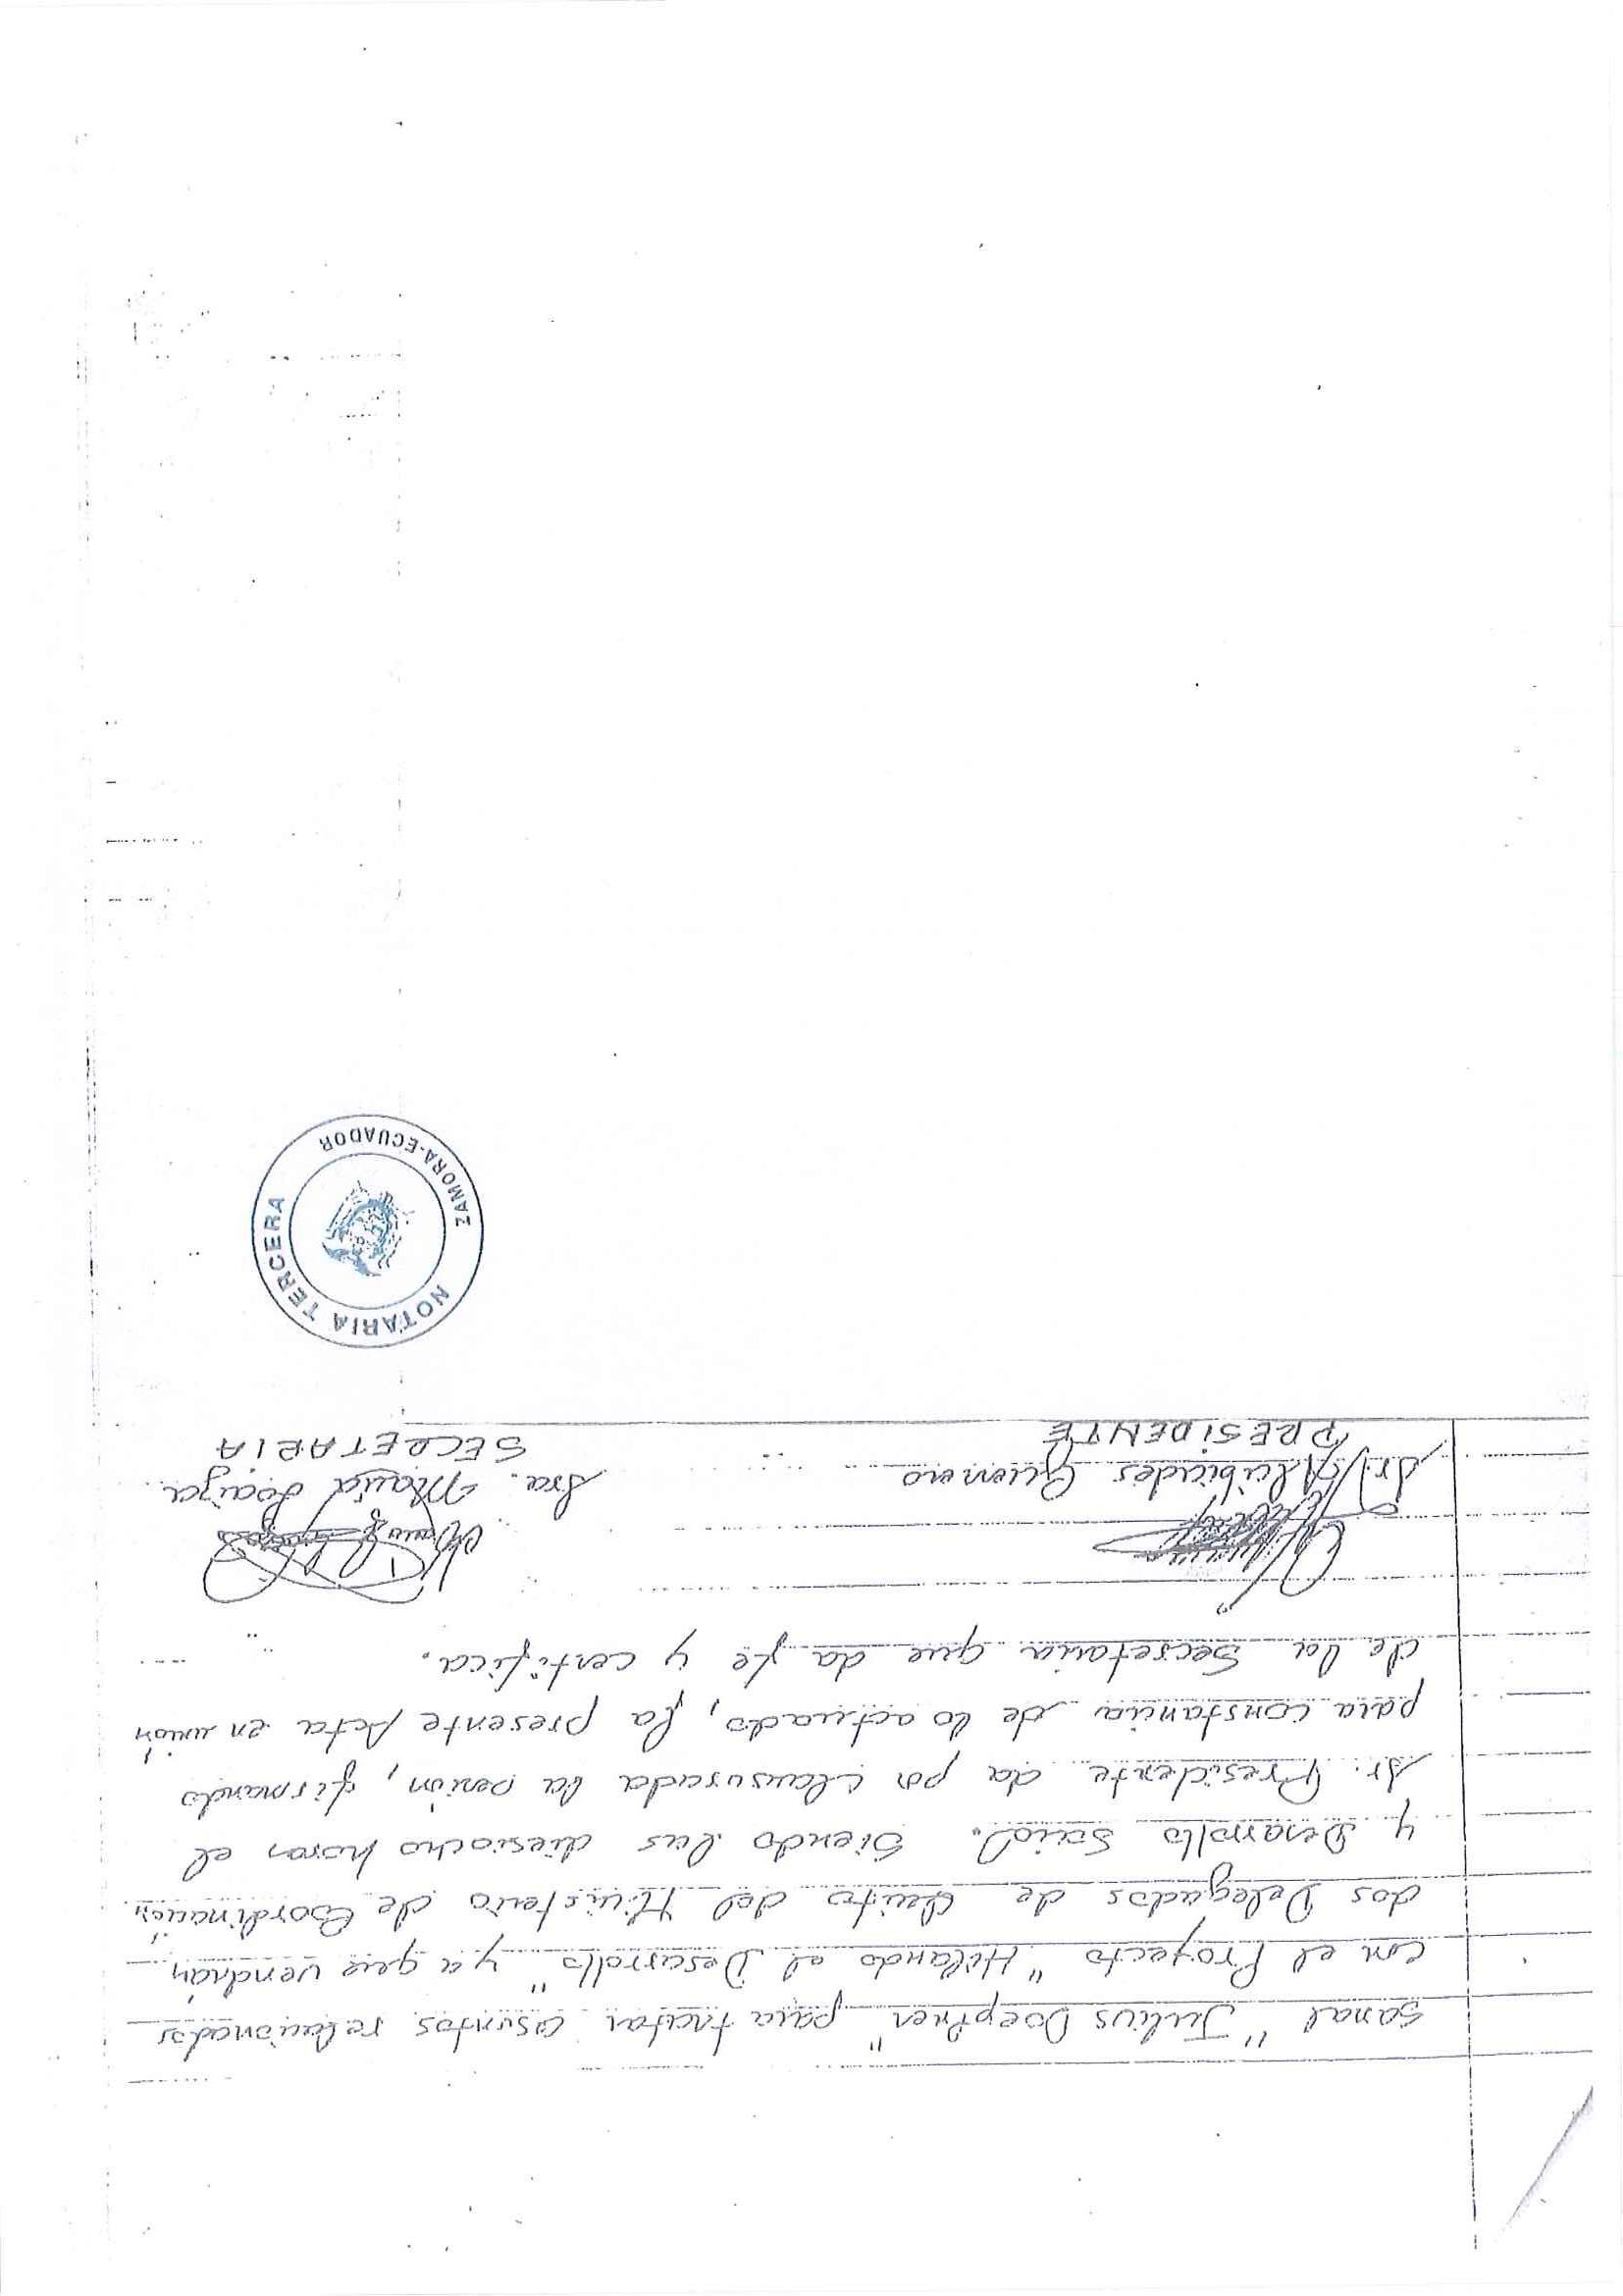 sanal "Julius Doephner" para tratar asuntos relacionados
con el Proyecto "Hilando el Desarrollo" ya que vendrán
dos Delegados de Quito del Ministerio de Coordinación
y Desarrollo Social. Siendo las diesiocho horas el
Sr. Presidente da por clausurada la sesión, firmando
para constancia de lo actuado, la presente Acta en unión
de la Secretaria que da fe y certifica.
Sr. Alcibiades Guerrero
PRESIDENTE
Sra. María Loaiza
SECRETARIA
NOTARIA TERCERA
ZAMORA-ECUADOR